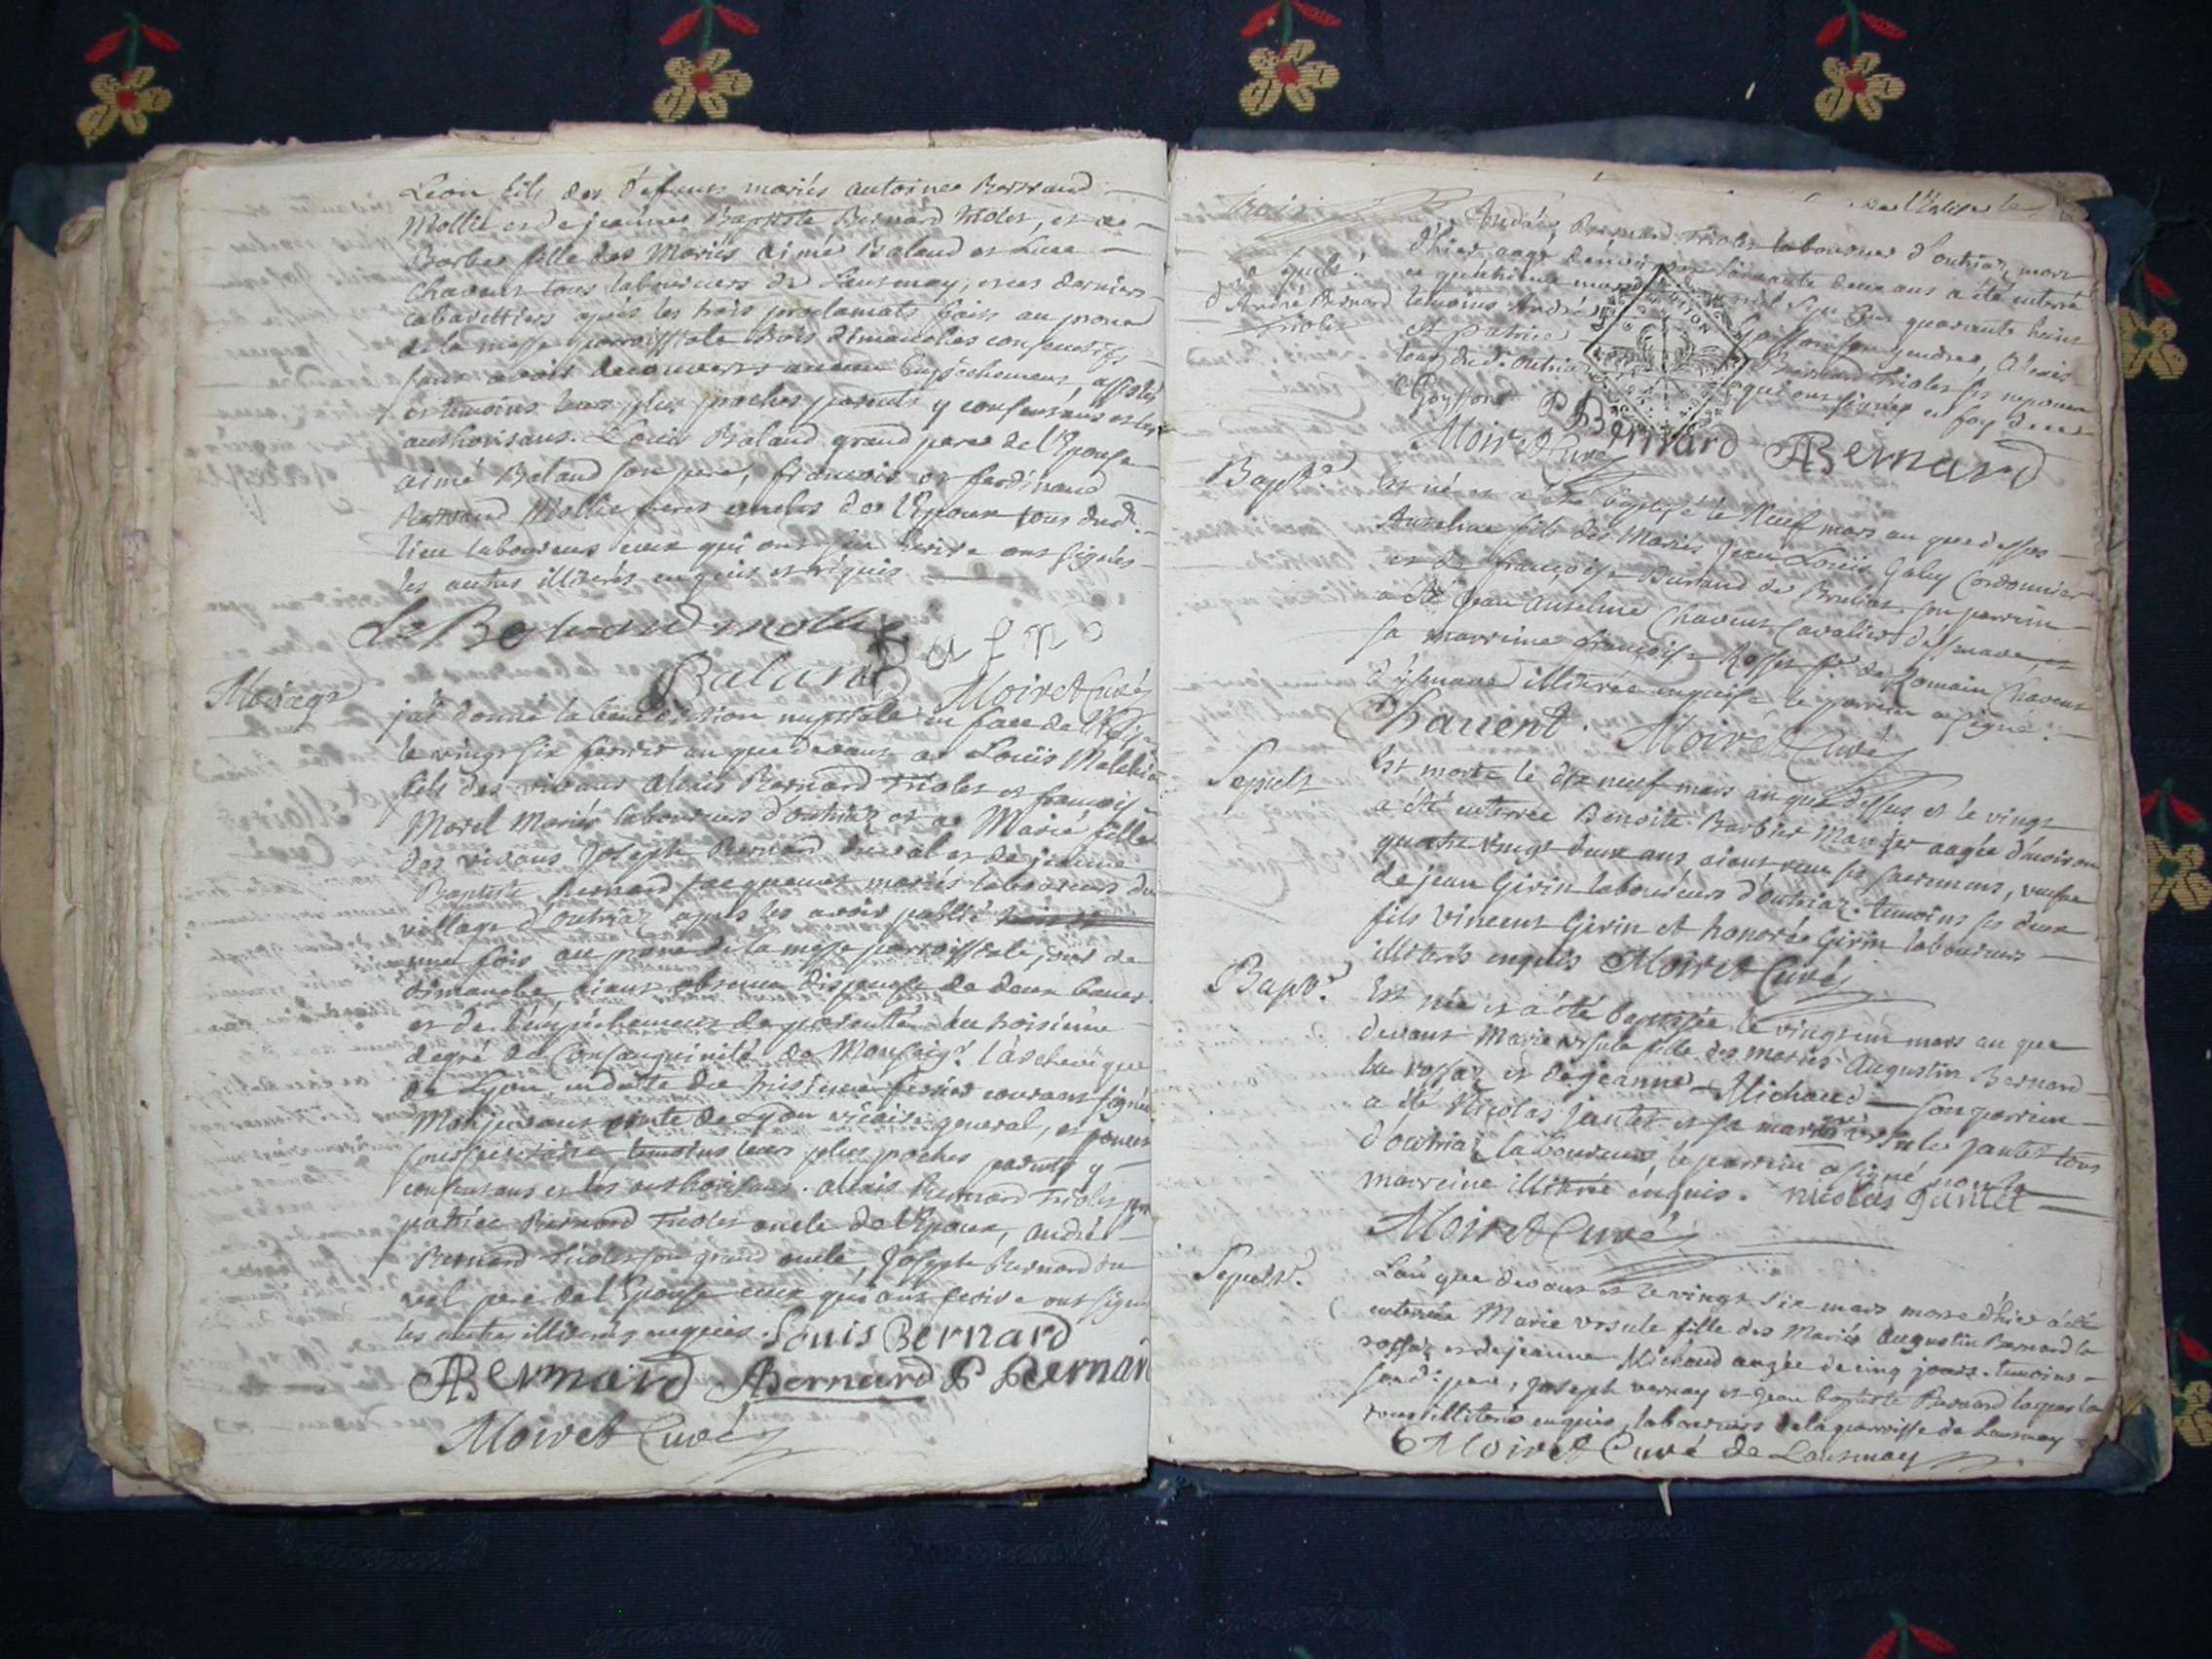 Leon fils des defunts mariés antoine Bertrand
Mollie et de jeanne Baptiste Bernard trolet, et a
Barbe fille des Mariés aimé Baland et Luce
Chavent tous laboureurs de Lausnay, et ces derniers
cabarettiers après les trois proclamats fais au prone
de la messe parroissiale trois dimanches consecutifs
sans avoir decouverts aucun empechement, assistés
et temoins leurs plus proches parents y consentans et les
authorisans. Louis Baland grand pere de l'Epouse
aimé Baland son pere, francois et ferdinand
Bertrand Mollie freres oncles de l'Epoux tous dud.
lieu laboureurs ceux qui ont sçu ecrire ont signés
les autres illiterés enquis et requis
Le Bertrand mollie
Baland
Moiret Curé
Mariage
jai donné la benediction nuptiale en face de l'Eglise
le vingt six fevrier an que devant a Louis Melchior
fils des vivans Alexis Bernard Trolet et francoise
Morel Mariés laboureurs d'outriaz et a Marie fille
des vivans Joseph Bernard du val et de jeanne
Baptiste Bernard jacquemet mariés laboureurs du
village d'outriaz après les avoir publié
une fois au prone de la messe parroissiale, jour de
dimanche, aiant obtenue dispense de deux bancs
et de l'empechement de parenté du troisieme
degré de Consanguinité de Monseigr. l'archeveque
de Lyon en datte du troisieme fevrier courant signé
Montjouvent comte de Lyon vicaire general, et
sous secretaire temoins leurs plus proches parents y
consentans et les authorisans. alexis Bernard Trolet per
patrice Bernard Trolet oncle de l'Epoux, andré
Bernard Trolet son grand oncle, Joseph Bernard du
val pere de l'Epouse ceux qui ont sçu ecrire ont signé
les autres illiterés enquis. Louis Bernard
ABernard ABernard P Bernar
Moiret Curé
trois
de l'Eglise le
Sepult.
d'André Bernard
trolet
André Bernard Trolet laboureur d'outriaz, mort
d'hier, aagé d'environ soixante deux ans a été enterré
le quatrieme mars mil sept cent quarante huit
temoins André Goiffon son gendre, Alexis
et patrice Bernard Trolet ses neveux
tous dud. outriaz qui ont signés en foy de ce
Goyffon P Bernard ABernard
Moiret Curé
Bapt.
Est né et a été baptisé le Neuf mars an que dessus
Anselme fils des Mariés Jean Louis Galey Cordonnier
et de francoise Burand de Brenas son parrein
a été jean anselme Chavent Cavalier d'ysenave, et
sa marreine francoise Rosset fe. de Romain Chavent
d'ysenave illiterée enquise le parrein a signé.
Chavent. Moiret Curé
Sepult
Est morte le dix neuf mars an que dessus et le vingt
a été enterree Benoite Barbier Manger aagée d'environ
quatre vingt deux ans, aiant reçu ses sacremens, veufve
de jean Girin laboureurs d'outriaz. temoins ses deux
fils vincent Girin et honoré Girin laboureurs
illiterés enquis Moiret Curé
Bapt.
Est née et a été baptisée le vingt un mars an que
devant Marie ursule fille des mariés Augustin Bernard
la rossaz et de jeanne Michaud son parrein
a été Nicolas jantet et sa marreine ursule jantet tous
d'outriaz laboureurs, le parrein a signé non la
marreine illiterée enquis. nicolas Jantet
Moiret Curé
Sepult.
L'an que devant et le vingt six mars morte d'hier a été
enterrée Marie ursule fille des Mariés augustin Bernard la
rossaz et de jeanne Michaud aagée de cinq jours. temoins
sond. pere, joseph vernay et jean baptiste Bernard
tous illiterés enquis, laboureurs de la parroisse de Lausnay
Moiret Curé de Lausnay